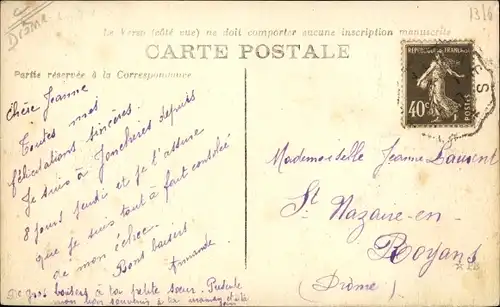 Drôme
13/6
Le Verso (côté vue) ne doit comporter aucune inscription manuscrite
CARTE POSTALE
Partie réservée à la Correspondance
REPUBLIQUE FRANÇAISE
40c
POSTES
Chère Jeanne
Toutes mes
félicitations sincères.
Je suis à Jonchères depuis
8 jours jeudi et je t'assure
que je suis tout à fait consolée
de mon échec.
Bons baisers
Armande
De gros baisers à ta petite sœur.
mon bon souvenir à ta
Mademoiselle Jeanne Laurent
St Nazaire-en-
Royans
(Drôme)